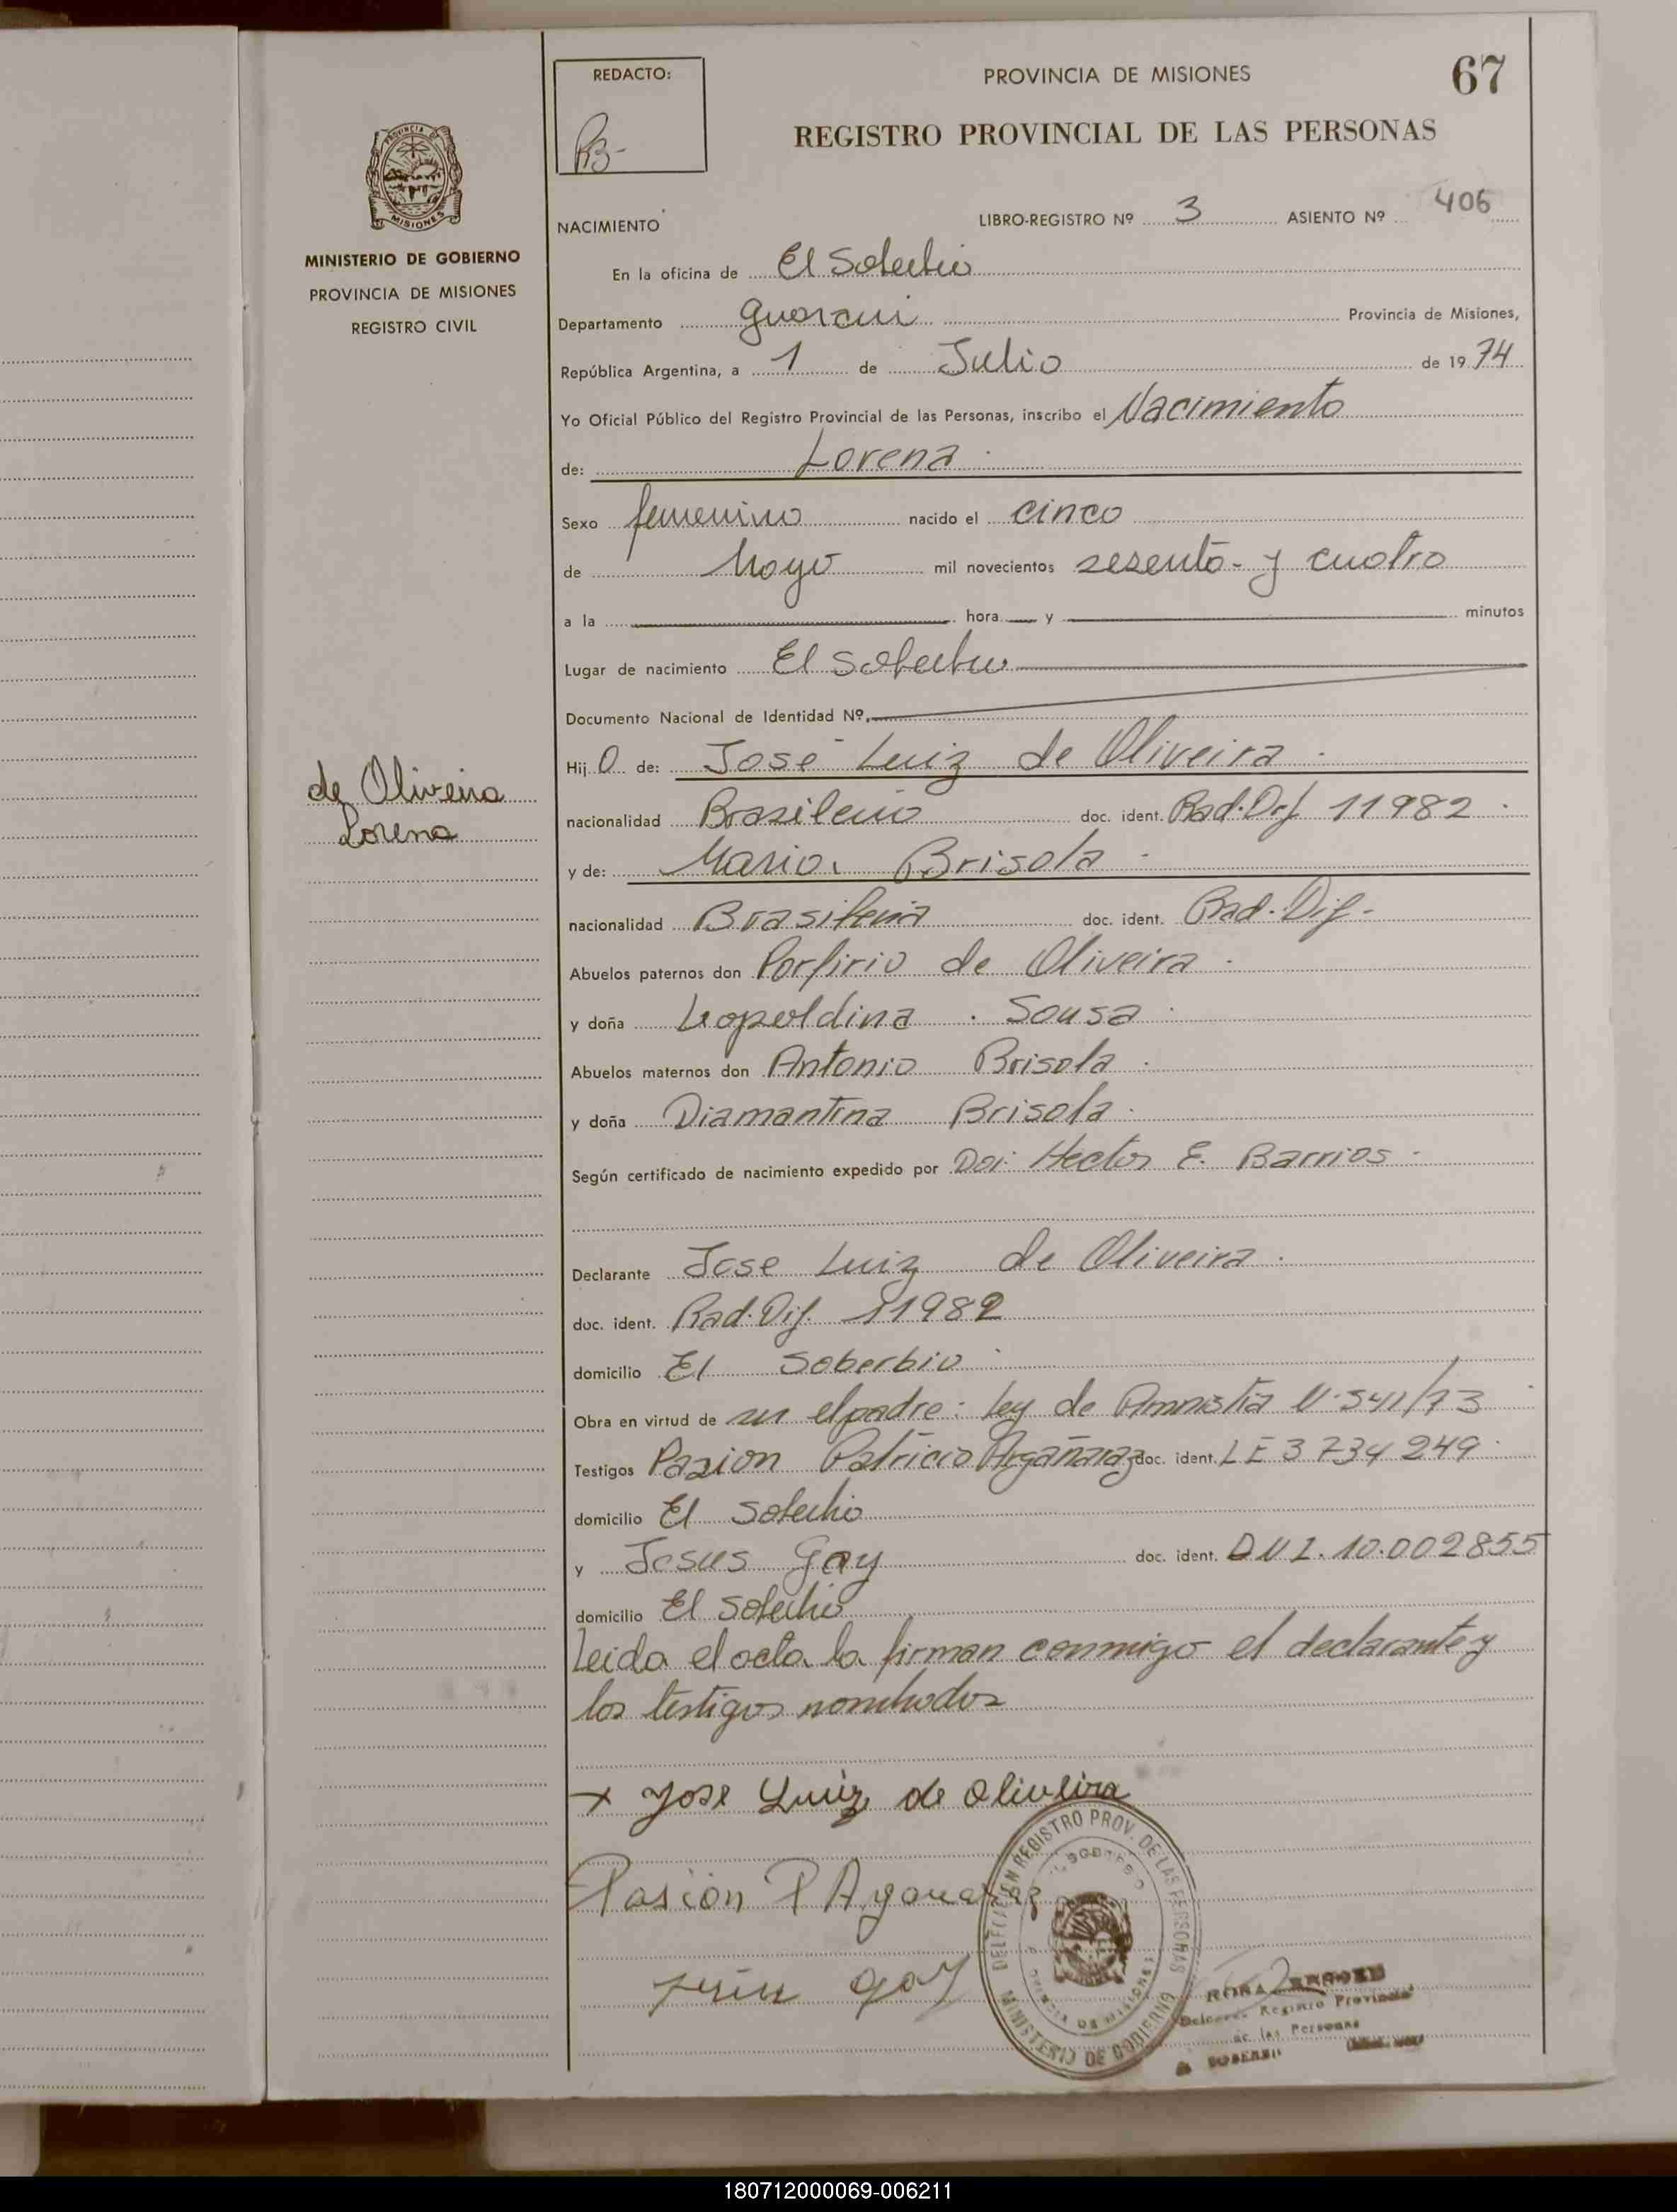 REDACTO:
PROVINCIA DE MISIONES
67
REGISTRO PROVINCIAL DE LAS PERSONAS
MINISTERIO DE GOBIERNO
PROVINCIA DE MISIONES
REGISTRO CIVIL
NACIMIENTO
LIBRO-REGISTRO Nº 3 ASIENTO Nº 406
En la oficina de El Soberbio
Departamento Guarani Provincia de Misiones,
República Argentina, a 1 de Julio de 1974
Yo Oficial Público del Registro Provincial de las Personas, inscribo el Nacimiento
de: Lorena
Sexo femenino nacido el cinco
de Mayo mil novecientos sesenta y cuatro
a la hora y minutos
Lugar de nacimiento El Soberbio
Documento Nacional de Identidad Nº
Hij O de: José Luiz de Oliveira
nacionalidad Brasileño doc. ident. Rad. Dif 11982
y de: Maria Brisola
nacionalidad Brasileña doc. ident. Rad. Dif-
Abuelos paternos don Porfirio de Oliveira
y doña Leopoldina Sousa
Abuelos maternos don Antonio Brisola
y doña Diamantina Brisola
Según certificado de nacimiento expedido por Hector E. Barrios
de Oliveira
Lorena
Declarante Jose Luiz de Oliveira
doc. ident. Rad. Dif. 11982
domicilio El Soberbio
Obra en virtud de ser el padre: Ley de Amnistia N° 541/73
Testigos Pasion Patricio Argañaraz doc. ident. LE 3734249
domicilio El Soberbio
y Jesus Gay doc. ident. DNI. 10.002855
domicilio El Soberbio
Leida el acta la firman conmigo el declarante y
los testigos nombrados
x Jose Luiz de Oliveira
Pasion P Argañaraz
Jesus Gay
DELEGACION REGISTRO PROV. DE LAS PERSONAS
MINISTERIO DE GOBIERNO
PROVINCIA DE MISIONES
ROSA
Registro Provincial
de las Personas
180712000069-006211